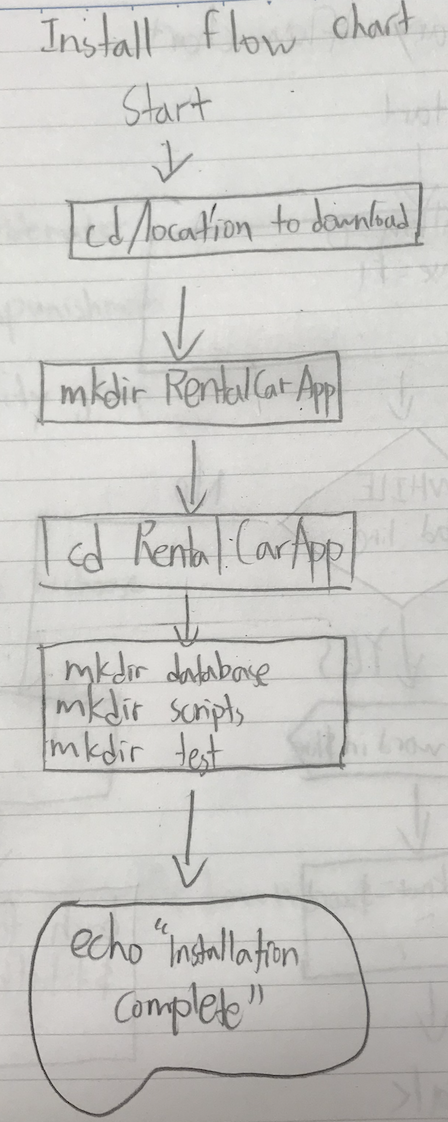 Install flow chart
Start
cd/location to download
mkdir RentalCarApp
cd RentalCarApp
mkdir database
mkdir scripts
mkdir test
echo "Installation
Complete"